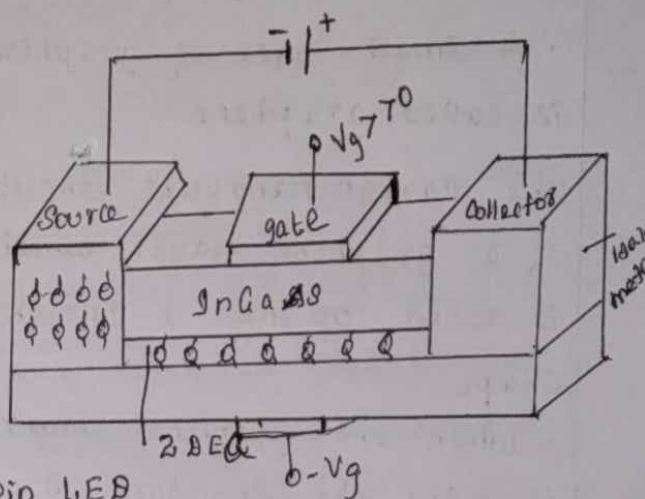 - +
Vg>>0
Source
gate
Collector
InGaAs
2DEG
-Vg
pin LED